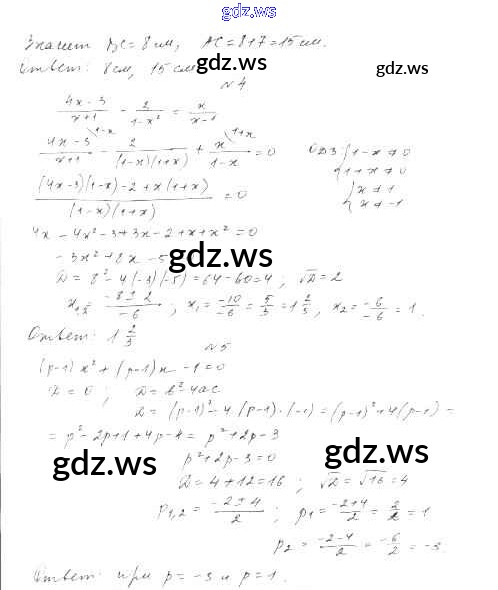 gdz.ws
Значит BC = 8 см, AC = 8+7 = 15 см.
Ответ: 8 см, 15 см
gdz.ws
gdz.ws
N 4
(4x - 3)/(x+1) - 2/(1-x²) = x/(x-1)
(4x - 3)/(x+1) - 2/((1-x)(1+x)) + x/(1-x) = 0
1-x
1+x
ОДЗ: { 1 - x ≠ 0
1 + x ≠ 0
((4x-3)(1-x) - 2 + x(1+x))/((1-x)(1+x)) = 0
{ x ≠ 1
x ≠ -1
4x - 4x² - 3 + 3x - 2 + x + x² = 0
- 3x² + 8x - 5
gdz.ws
gdz.ws
D = 8² - 4(-3)(-5) = 64 - 60 = 4 ; √D = 2
x₁,₂ = (-8 ± 2)/(-6) ; x₁ = -10/-6 = 5/3 = 1 2/3, x₂ = -6/-6 = 1.
Ответ: 1 2/3
N 5
(p-1)x² + (p-1)x - 1 = 0
D = 0 ; D = b² - 4ac
D = (p-1)² - 4·(p-1)·(-1) = (p-1)² + 4(p-1) =
= p² - 2p + 1 + 4p - 4 = p² + 2p - 3
p² + 2p - 3 = 0
gdz.ws
gdz.ws
D = 4 + 12 = 16 ; √D = √16 = 4
p₁,₂ = (-2 ± 4)/2 ; p₁ = (-2+4)/2 = 2/2 = 1
p₂ = (-2-4)/2 = -6/2 = -3.
Ответ: при p = -3 и p = 1.